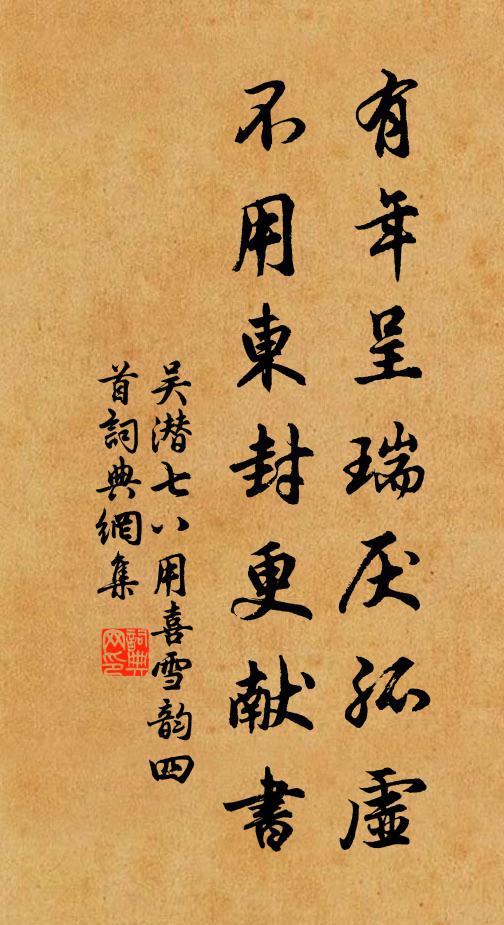 有年呈瑞厌孤虛
不用東封更献書
吴潜七八用喜雪韵四
首詞典網集
詞典网印